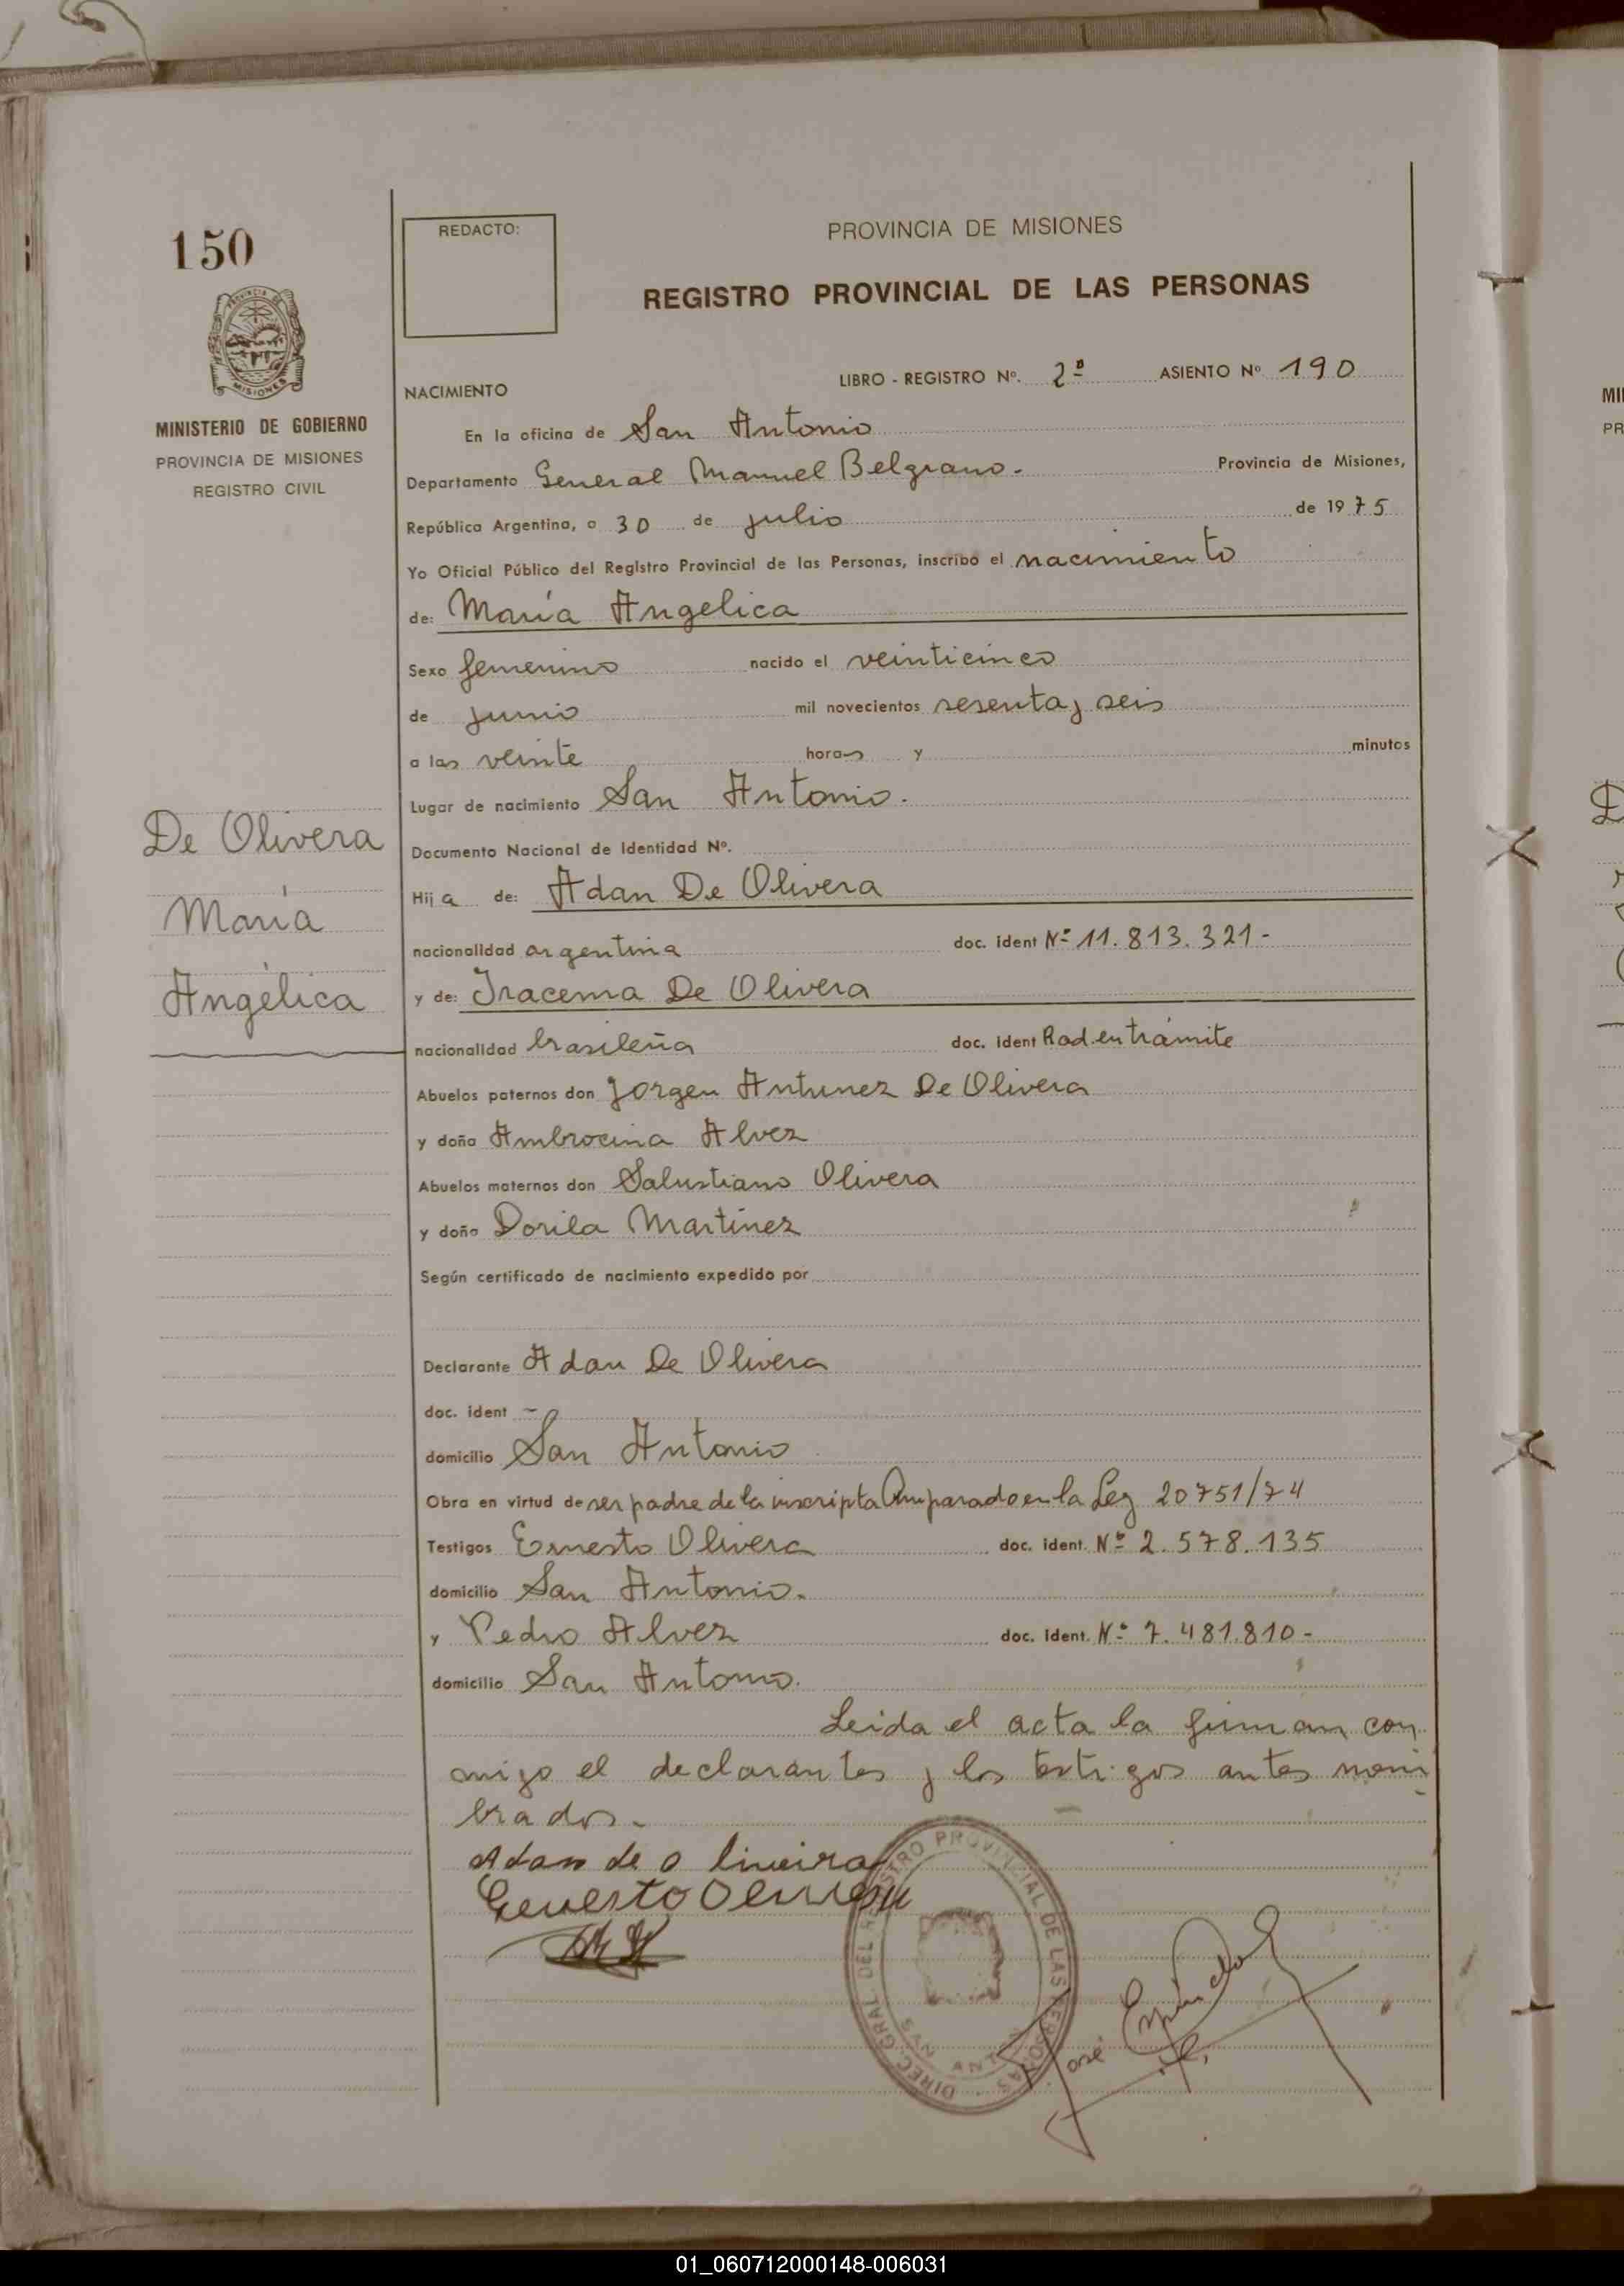 150
MINISTERIO DE GOBIERNO
PROVINCIA DE MISIONES
REGISTRO CIVIL
De Olivera
María
Angélica
REDACTO:
PROVINCIA DE MISIONES
REGISTRO PROVINCIAL DE LAS PERSONAS
NACIMIENTO LIBRO - REGISTRO Nº. 2º ASIENTO Nº 190
En la oficina de San Antonio
Departamento General Manuel Belgrano. Provincia de Misiones,
República Argentina, a 30 de julio de 1975
Yo Oficial Público del Registro Provincial de las Personas, inscribo el nacimiento
de: María Angelica
Sexo femenino nacido el veinticinco
de junio mil novecientos sesenta y seis
a las veinte horas y minutos
Lugar de nacimiento San Antonio.
Documento Nacional de Identidad Nº.
Hija de: Adan De Olivera
nacionalidad argentina doc. ident Nº 11.813.321-
y de: Iracema De Olivera
nacionalidad brasileña doc. ident Rad. en trámite
Abuelos paternos don Jorgen Antunez De Olivera
y doña Ambrocina Alvez
Abuelos maternos don Salustiano Olivera
y doña Dorila Martinez
Según certificado de nacimiento expedido por
Declarante Adan De Olivera
doc. ident -
domicilio San Antonio
Obra en virtud de ser padre de la inscripta Amparado en la Ley 20751/74
Testigos Ernesto Olivera doc. ident. Nº 2.578.135
domicilio San Antonio.
y Pedro Alvez doc. ident. Nº 7.481.810-
domicilio San Antonio.
Leida el acta la firman con
migo el declarantes y los testigos antes nom
brados.-
Adan de oliveira
DIREC. GRAL DEL REGISTRO PROVINCIAL DE LAS PERSONAS
SAN ANTONIO
José
01_060712000148-006031